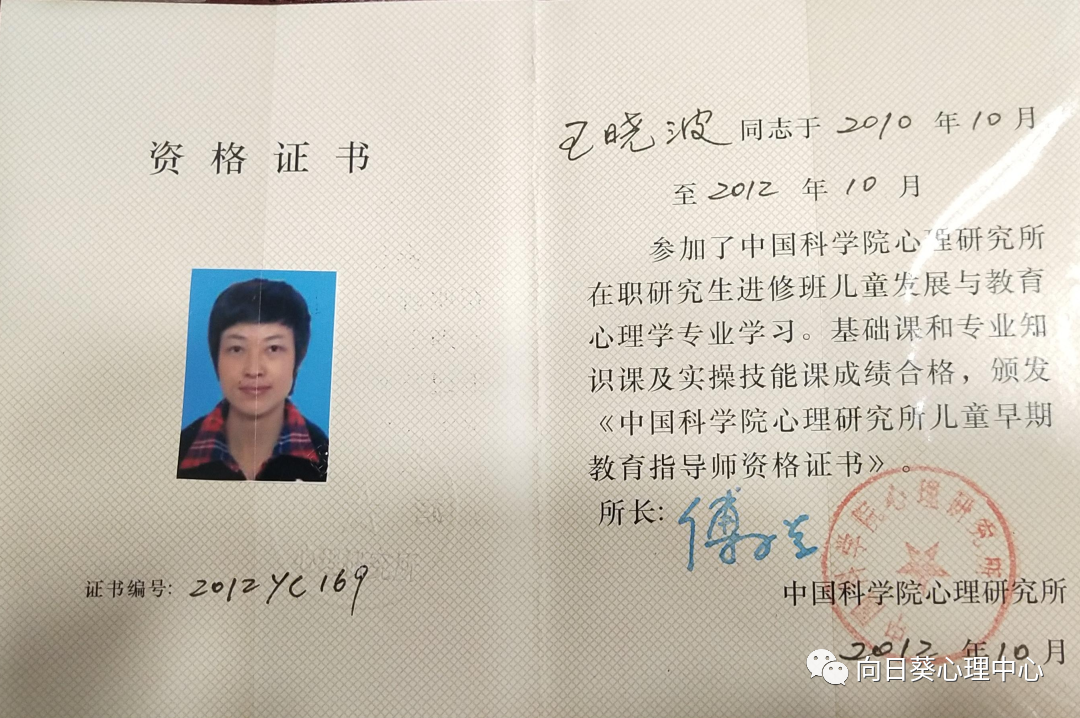 资格证书
证书编号: 2012YC169
王晓波同志于2010年10月
至2012年10月
参加了中国科学院心理研究所
在职研究生进修班儿童发展与教育
心理学专业学习。基础课和专业知
识课及实操技能课成绩合格，颁发
《中国科学院心理研究所儿童早期
教育指导师资格证书》。
所长:
中国科学院心理研究所
中国科学院心理研究所
2012年10月
向日葵心理中心